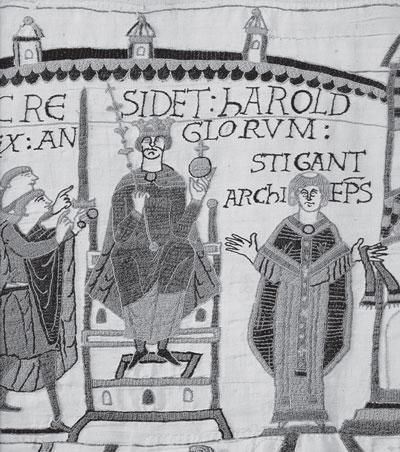 C RE SIDET : hAROLD
IX : AN GLORVM :
STIGANT
ARChI EP̅S